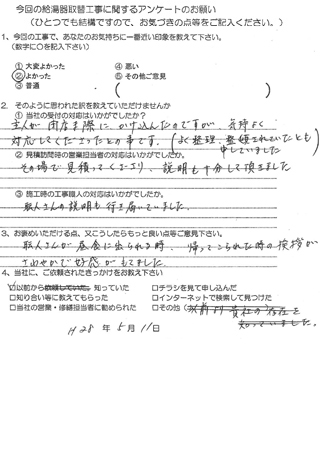 今回の給湯器取替工事に関するアンケートのお願い
(ひとつでも結構ですので、お気づきの点等をご記入ください。)
1、今回の工事で、あなたのお気持ちに一番近い印象を教えて下さい。
(数字に○を記入下さい)
① 大変よかった ④ 悪い
②よかった ⑤ その他ご意見
③ 普通 ( )
2. そのように思われた訳を教えていただけませんか
① 当社の受付の対応はいかがでしたか?
主人が閉店ま際にかけ込んだのですが、気持よく
対応してくださったとの事です。(よく整理、整頓されていたとも
申していました
② 見積訪問時の営業担当者の対応はいかがでしたか。
その場で見積ってくださり、説明も十分して頂きました
③ 施工時の工事職人の対応はいかがでしたか。
職人さんの説明も行き届いていました。
3、お褒めいただける点、又こうしたらもっと良い点等ご意見下さい。
職人さんが昼食に出られる時、帰ってこられた時の挨拶が
さわやかで好感がもてました
4、当社に、ご依頼されたきっかけをお教え下さい
☑以前から依頼していた 知っていた □チラシを見て申し込んだ
□知り合い等に教えてもらった □インターネットで検索して見つけた
□当社の営業・修繕担当者に勧められた □その他 (以前より貴社の存在を
知っていました。
H28年5月11日